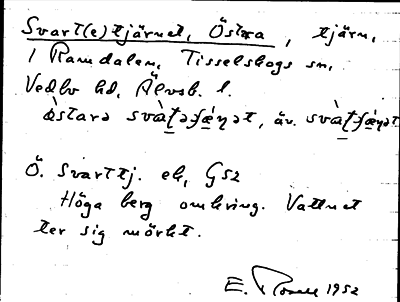 Svart(e)tjärnet, Östra, tjärn,
i Ramdalen, Tisselskogs sn,
Vedbo hd, Älvsb. l.
östarə svàʈəçǽɳət, äv. svàʈçǽɳət
Ö. Svarttj. ek, GS2
Höga berg omkring. Vattnet
ter sig mörkt.
E. 1952